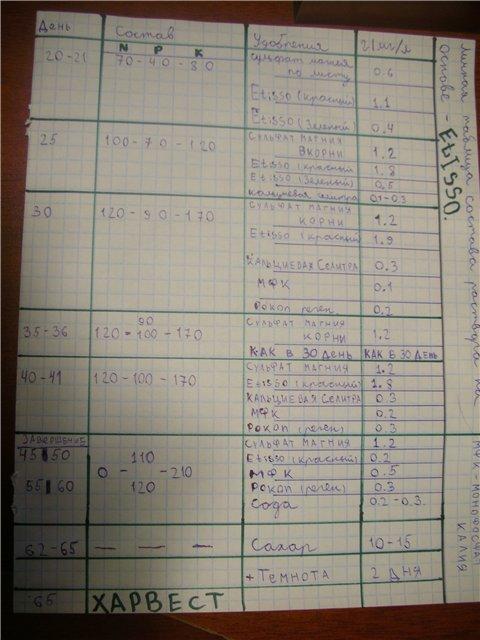 День Состав Удобрения 21 мг/л
N P K
20-21 70-40-80 сульфат магния
по листу 0.6
Etisso (красный) 1.1
Etisso (Зеленый) 0.4
25 100-70-120 Сульфат магния
В корни 1.2
Etisso (красный) 1.8
Etisso (Зеленый) 0.5
кальциевая селитра 0.1-0.3
30 120-90-170 Сульфат магния
корни 1.2
Etisso (красный) 1.9
Кальциевая селитра 0.3
МФК 0.1
Рокоп реген. 0.2
35-36 120-100-170 Сульфат магния
90
корни 1.2
КАК В 30 ДЕНЬ КАК В 30 ДЕНЬ
40-41 120-100-170 Сульфат магния 1.2
Etisso (красный) 1.8
Кальциевая селитра 0.3
МФК 0.2
Рокоп (реген) 0.3
ЗАВЕРШЕНИЕ Сульфат магния 1.2
45 50 110 Etisso (красный) 0.2
0 - - 210 МФК 0.5
55 60 120 Рокоп (реген) 0.3
Сода 0.2-0.3.
62-65 — — — Сахар 10-15
+Темнота 2 ДНЯ
65 ХАРВЕСТ
личная таблица состава раствора на
Основе - EtISSO.
МФК монофосфат
калия